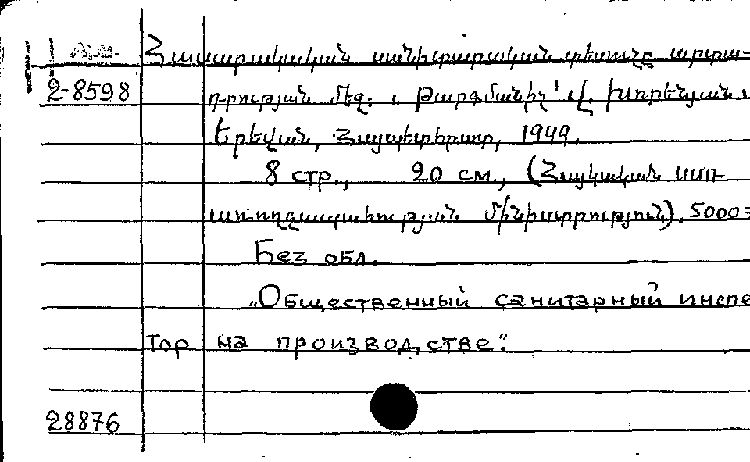 Հասարակական սանիտարական տեսուչը արտա-
2-8598 դրության մեջ: Թարգմանիչ՝ Վ. Խորենյան
Երեվան, Հայպետհրատ, 1949.
8 стр., 20 см., (Հայկական ՍՍՌ
առողջապահության մինիստրություն). 5000
Без обл.
„Общественный санитарный инспе
тор на производстве".
28876